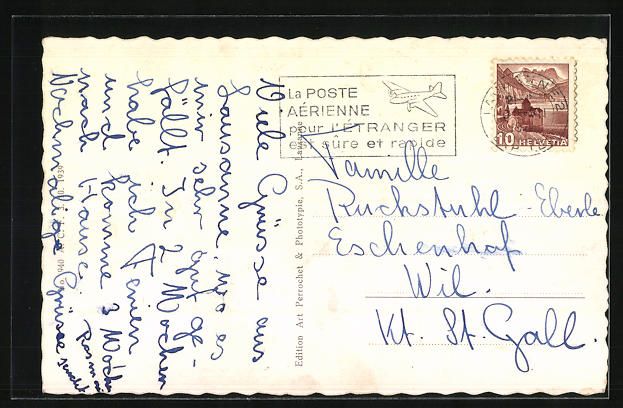 Viele Grüsse aus
Lausanne, wo es
mir sehr gut ge-
fällt. In 2 Wochen
habe ich Ferien
und komme 3 Woch.
nach Hause.
Nochmalige Grüsse sendet
La POSTE
AÉRIENNE
pour l'ÉTRANGER
est sûre et rapide
10 HELVETIA
Familie
Ruckstuhl-Eberle
Eschenhof
Wil.
Kt. St. Gall.
Edition Art Perrochet & Phototypie, S.A., Lausanne